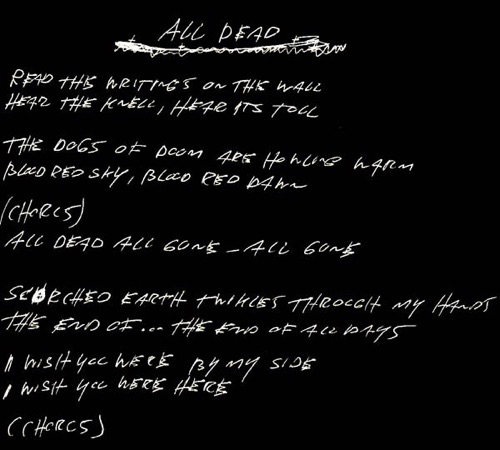 ALL DEAD
READ THE WRITINGS ON THE WALL
HEAR THE KNELL, HEAR ITS TOLL
THE DOGS OF DOOM ARE HOWLING WARM
BLOOD RED SKY, BLOOD RED DAWN
(CHORUS)
ALL DEAD ALL GONE – ALL GONE
SCORCHED EARTH THROUGH MY HANDS
THE END OF... THE END OF ALL DAYS
I WISH YOU WERE BY MY SIDE
I WISH YOU WERE HERE
(CHORUS)